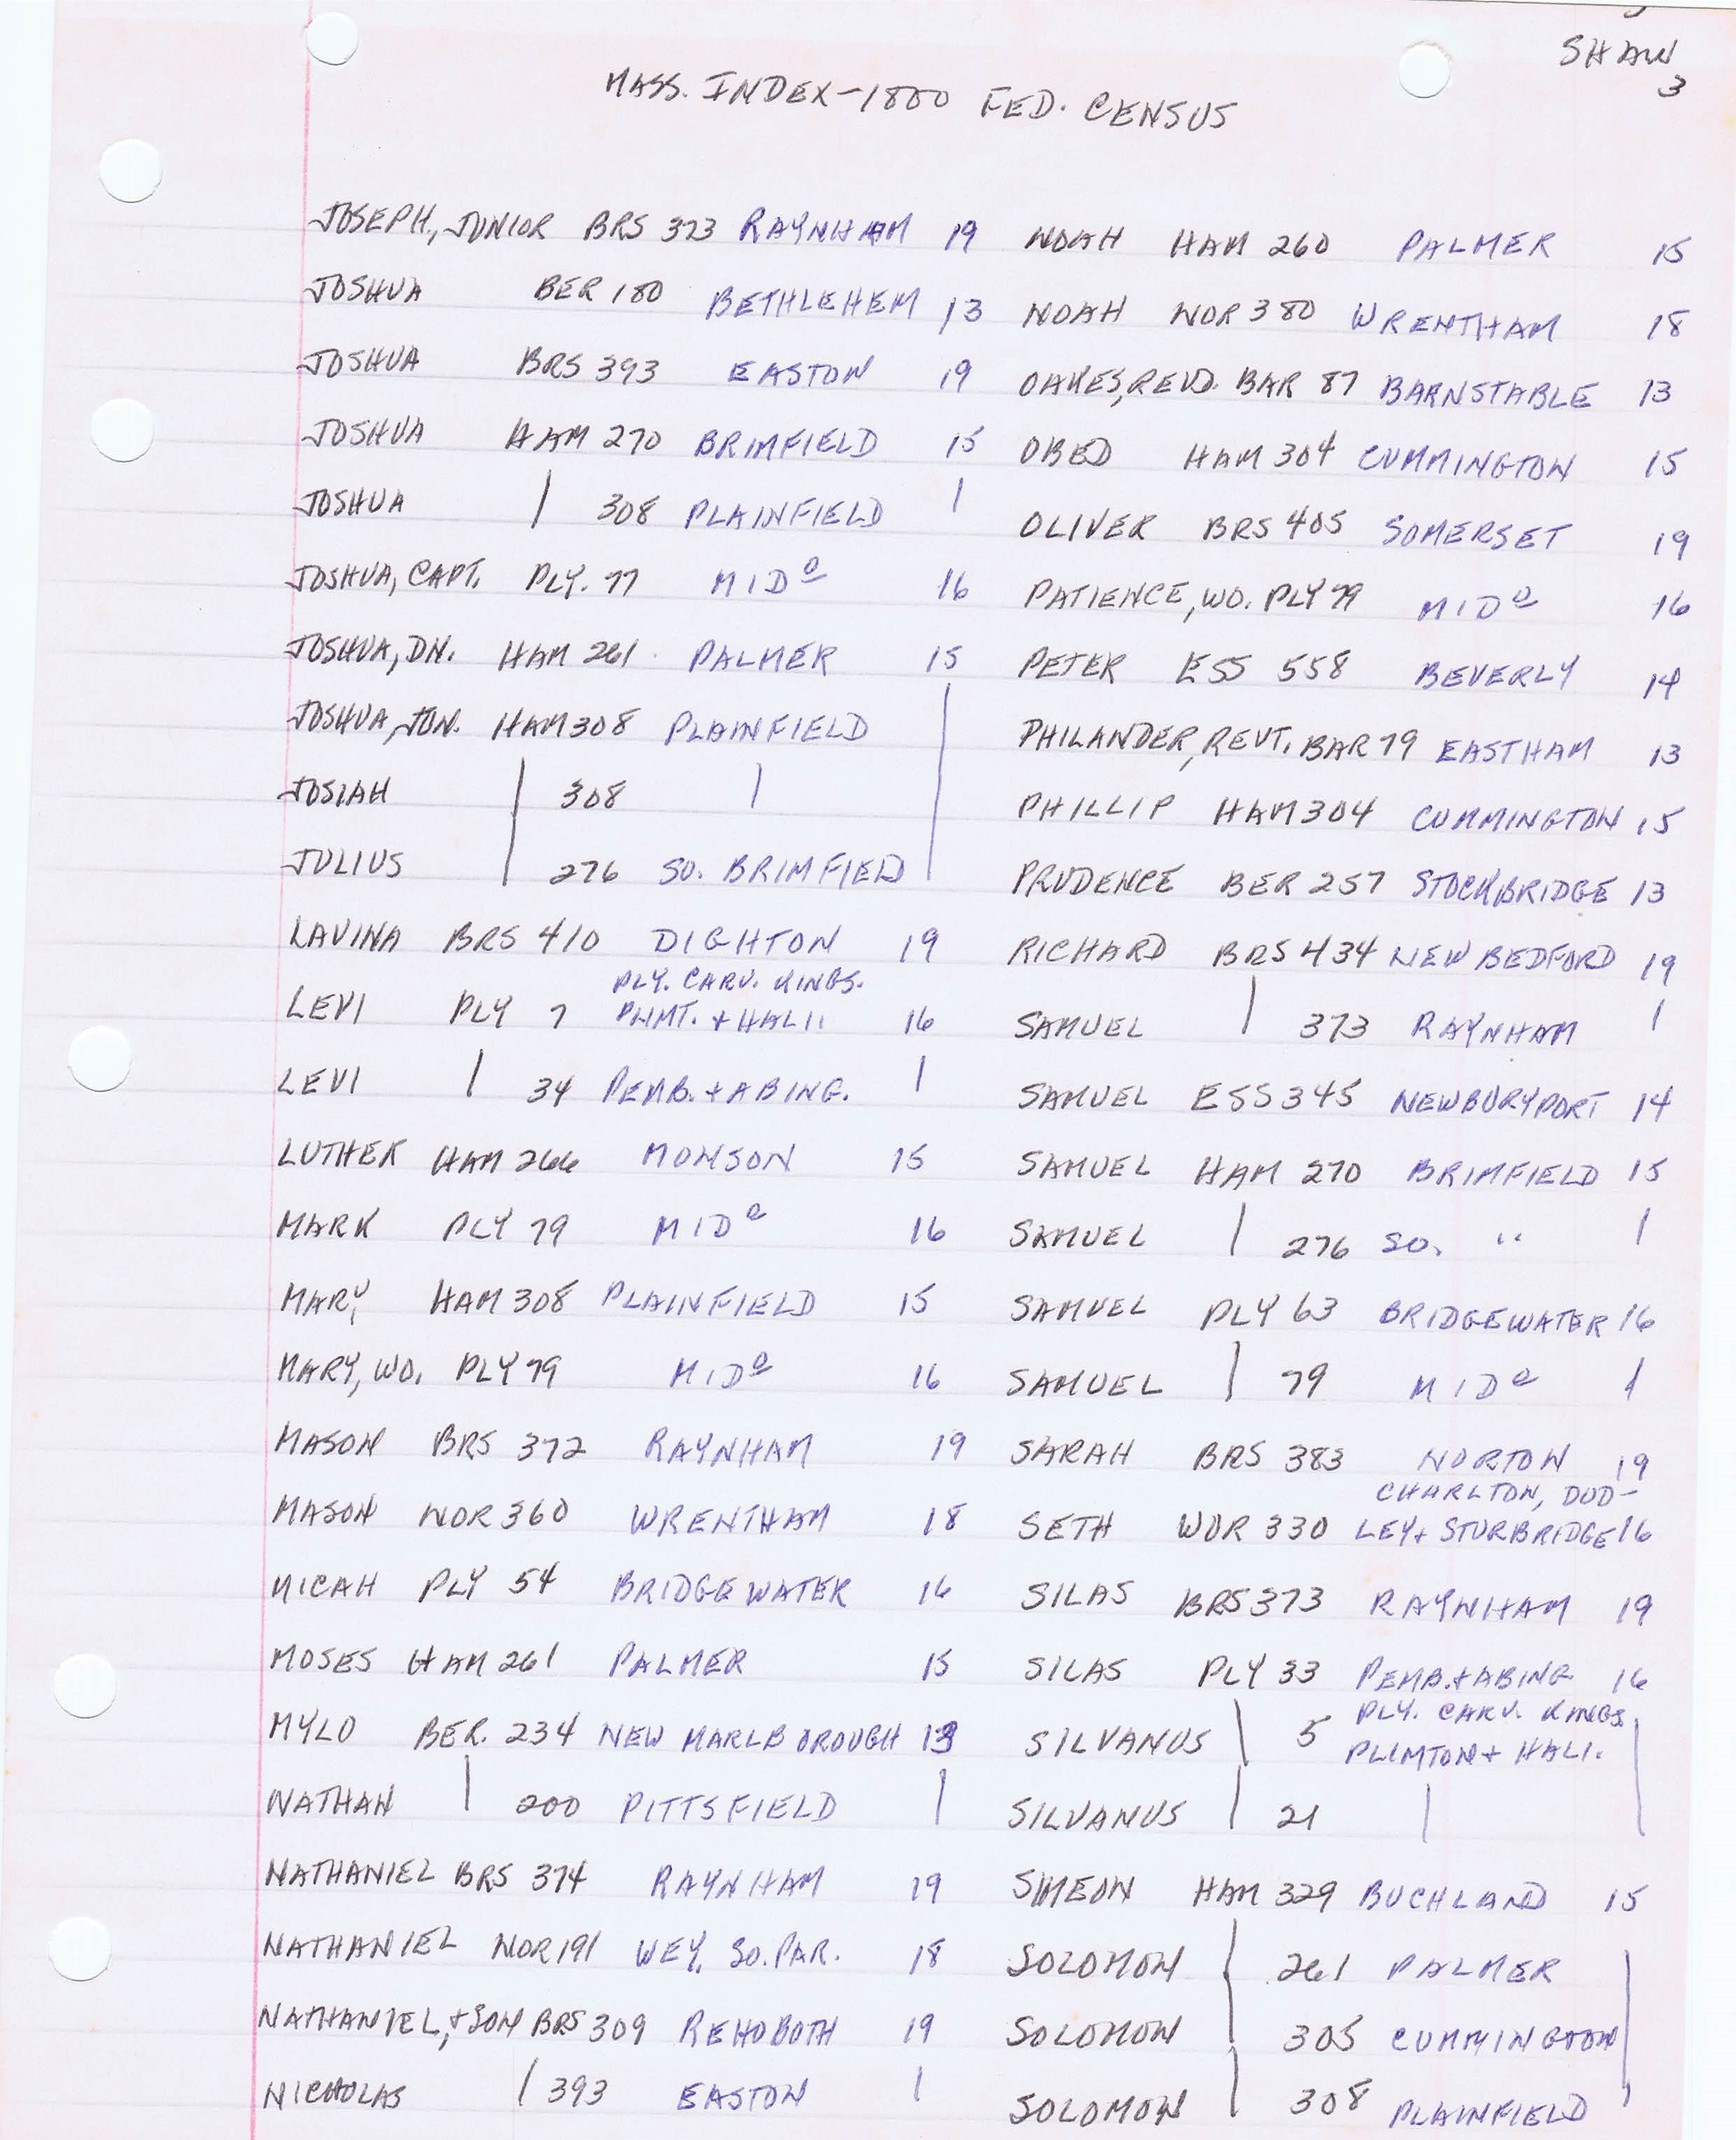 SHAW
3
MASS. INDEX-1800 FED. CENSUS
JOSEPH, JUNIOR BRS 373 RAYNHAM 19
JOSHUA BER 180 BETHLEHEM 13
JOSHUA BRS 393 EASTON 19
JOSHUA HAM 270 BRIMFIELD 15
JOSHUA | 308 PLAINFIELD |
JOSHUA, CAPT. PLY. 77 MIDº 16
JOSHUA, DN. HAM 261 PALMER 15
JOSHUA, JUN. HAM 308 PLAINFIELD |
JOSIAH | 308 | |
JULIUS | 276 SO. BRIMFIELD |
LAVINA BRS 410 DIGHTON 19
PLY. CARV. KINGS.
LEVI PLY 7 PLIMT. + HALI. 16
LEVI | 34 PEMB. + ABING. |
LUTHER HAM 266 MONSON 15
MARK PLY 79 MIDº 16
MARY, HAM 308 PLAINFIELD 15
MARY, WD. PLY 79 MIDº 16
MASON BRS 372 RAYNHAM 19
MASON NOR 360 WRENTHAM 18
MICAH PLY 54 BRIDGEWATER 16
MOSES HAM 261 PALMER 15
MYLO BER. 234 NEW MARLBOROUGH 13
NATHAN | 200 PITTSFIELD |
NATHANIEL BRS 374 RAYNHAM 19
NATHANIEL NOR 191 WEY. SO. PAR. 18
NATHANIEL, + SON BRS 309 REHOBOTH 19
NICHOLAS | 393 EASTON |
NOAH HAM 260 PALMER 15
NOAH NOR 380 WRENTHAM 18
OAKES, REVD. BAR 87 BARNSTABLE 13
OBED HAM 304 CUMMINGTON 15
OLIVER BRS 405 SOMERSET 19
PATIENCE, WD. PLY 79 MIDº 16
PETER ESS 558 BEVERLY 14
PHILANDER, REVT. BAR 79 EASTHAM 13
PHILLIP HAM 304 CUMMINGTON 15
PRUDENCE BER 257 STOCKBRIDGE 13
RICHARD BRS 434 NEW BEDFORD 19
SAMUEL | 373 RAYNHAM |
SAMUEL ESS 345 NEWBURYPORT 14
SAMUEL HAM 270 BRIMFIELD 15
SAMUEL | 276 SO. " |
SAMUEL PLY 63 BRIDGEWATER 16
SAMUEL | 79 MIDº |
SARAH BRS 383 NORTON 19
CHARLTON, DUD-
SETH WOR 330 LEY + STURBRIDGE 16
SILAS BRS 373 RAYNHAM 19
SILAS PLY 33 PEMB. + ABING 16
PLY. CARV. KINGS.
SILVANUS | 5 PLIMTON + HALI. |
SILVANUS | 21 | |
SIMEON HAM 329 BUCHLAND 15
SOLOMON | 261 PALMER |
SOLOMON | 305 CUMMINGTON |
SOLOMON | 308 PLAINFIELD |